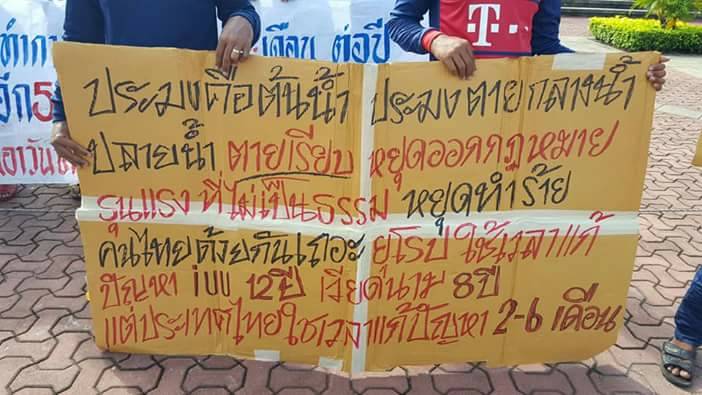 ทำกา
เดือน ต่อปี
อีก5
อาวัน
T
ประมงคือต้นน้ำ ประมงตายกลางน้ำ
ปลายน้ำ ตายเรียบ หยุดออกกฎหมาย
รุนแรง ที่ไม่เป็นธรรม หยุดทำร้าย
คนไทยด้วยกันเถอะ ยุโรปใช้เวลาแก้
ปัญหา iUU 12ปี เวียดนาม 8ปี
แต่ประเทศไทยใชเวลาแก้ปัญหา 2-6 เดือน